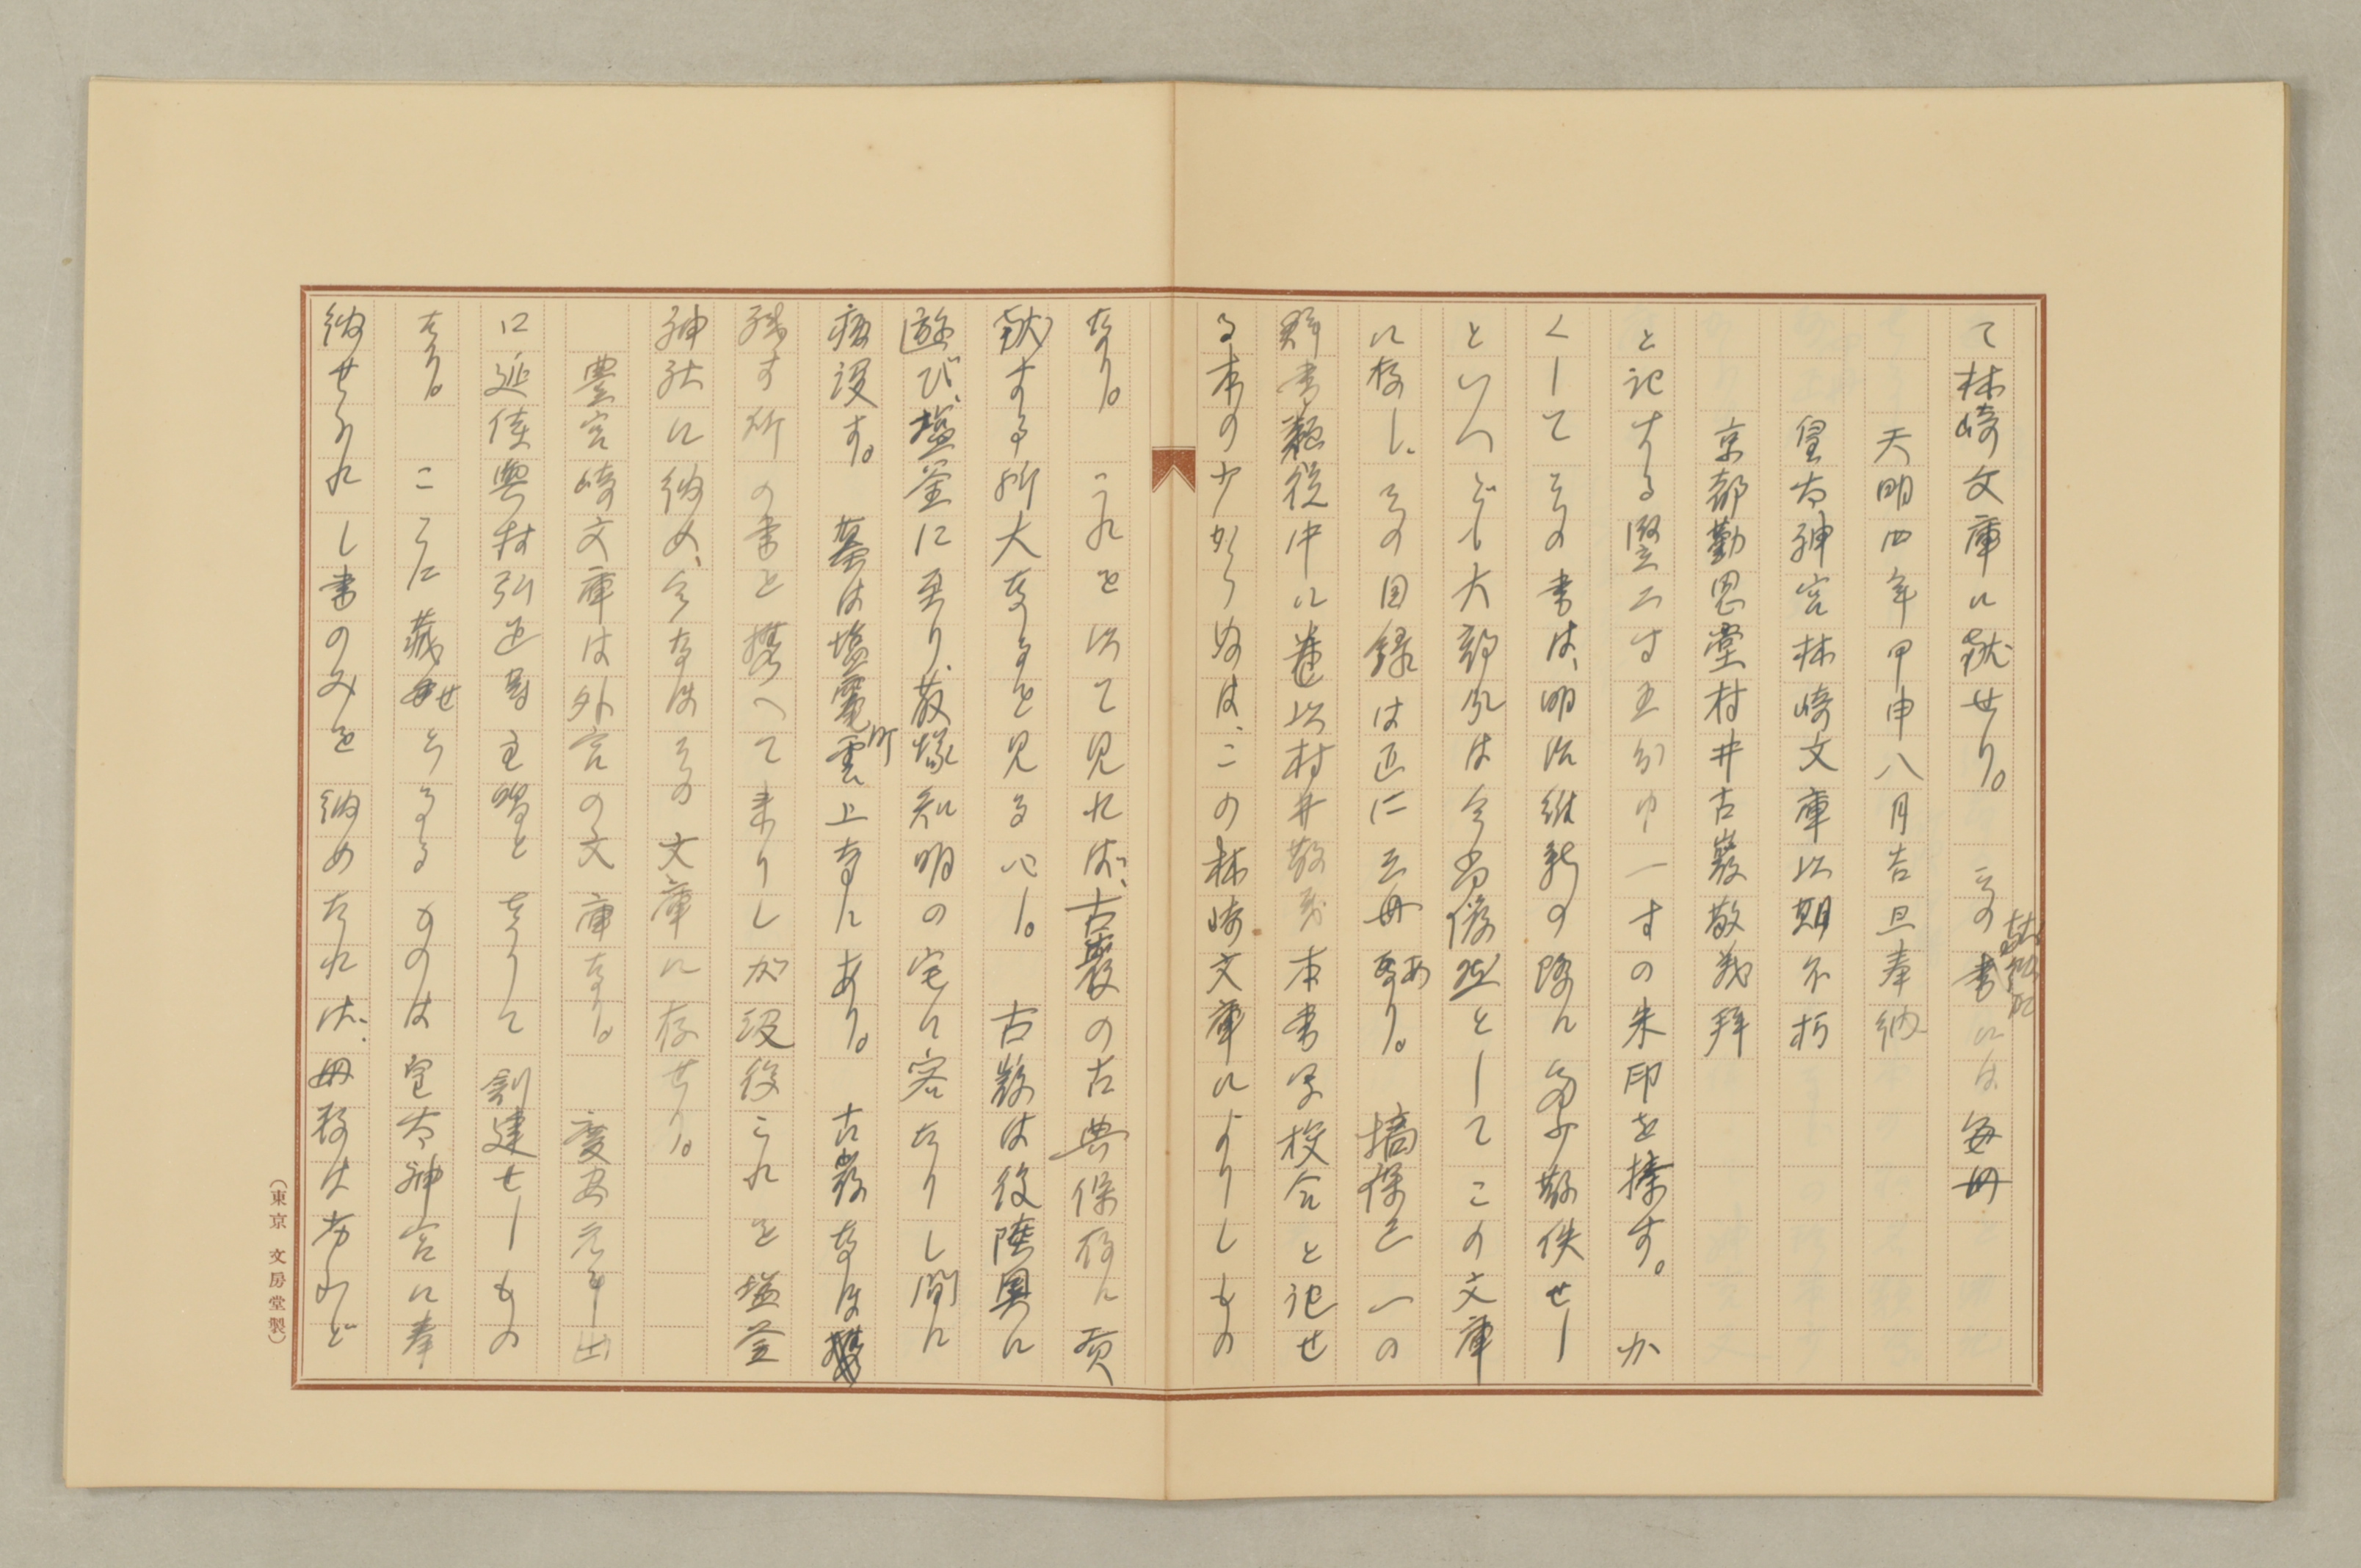 て林崎文庫に献せり。その書には毎冊
天明四年甲申八月吉旦奉納
皇太神宮林崎文庫以期不朽
京都勤思堂村井古巌敬義拝
と記する竪二寸五分巾一寸の朱印を捺す。か
くしてその書は、明治維新の際に多少散佚せし
といへども大部分は今尚儼然としてこの文庫
に存し、その目録は正に三冊あり。塙保己一の
群書類従中に巻以村井敬義本書写校合と記せ
る本の少からぬは、この林崎文庫によりしもの
なり。これを以て見れば、古巌の古典保存に貢
献する所大なるを見るべし。古巌は後陸奥に
遊び、塩釜に至り、藤塚知明の宅に客たりし間に
病没す。墓は塩竈町雲上寺にあり。古巌なほ
残す所の書を携へて来りしが没後これを塩釜
神社に納め、今なほその文庫に存せり。
豊宮崎文庫は外宮の文庫なり。慶安元年出
口延佳與村弘正等主唱となりて創建せしもの
なり。こゝに蔵せらるゝものは皇太神宮に奉
納せられし書のみを納めたれば、冊数は多からねど
(東京 文房堂製)